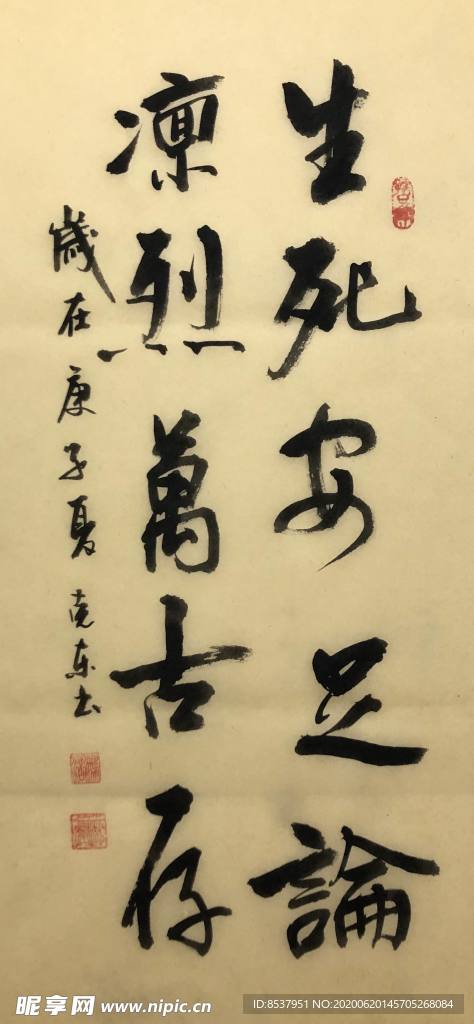 生死安足論
凜烈萬古存
歲在庚子夏克东书
昵享网 www.nipic.cn
ID:8537951 NO:20200620145705268084